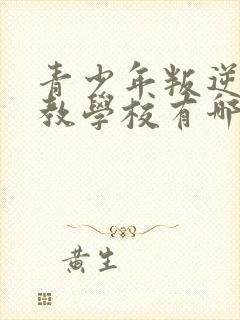 青少年叛逆
教學校有哪
黃生